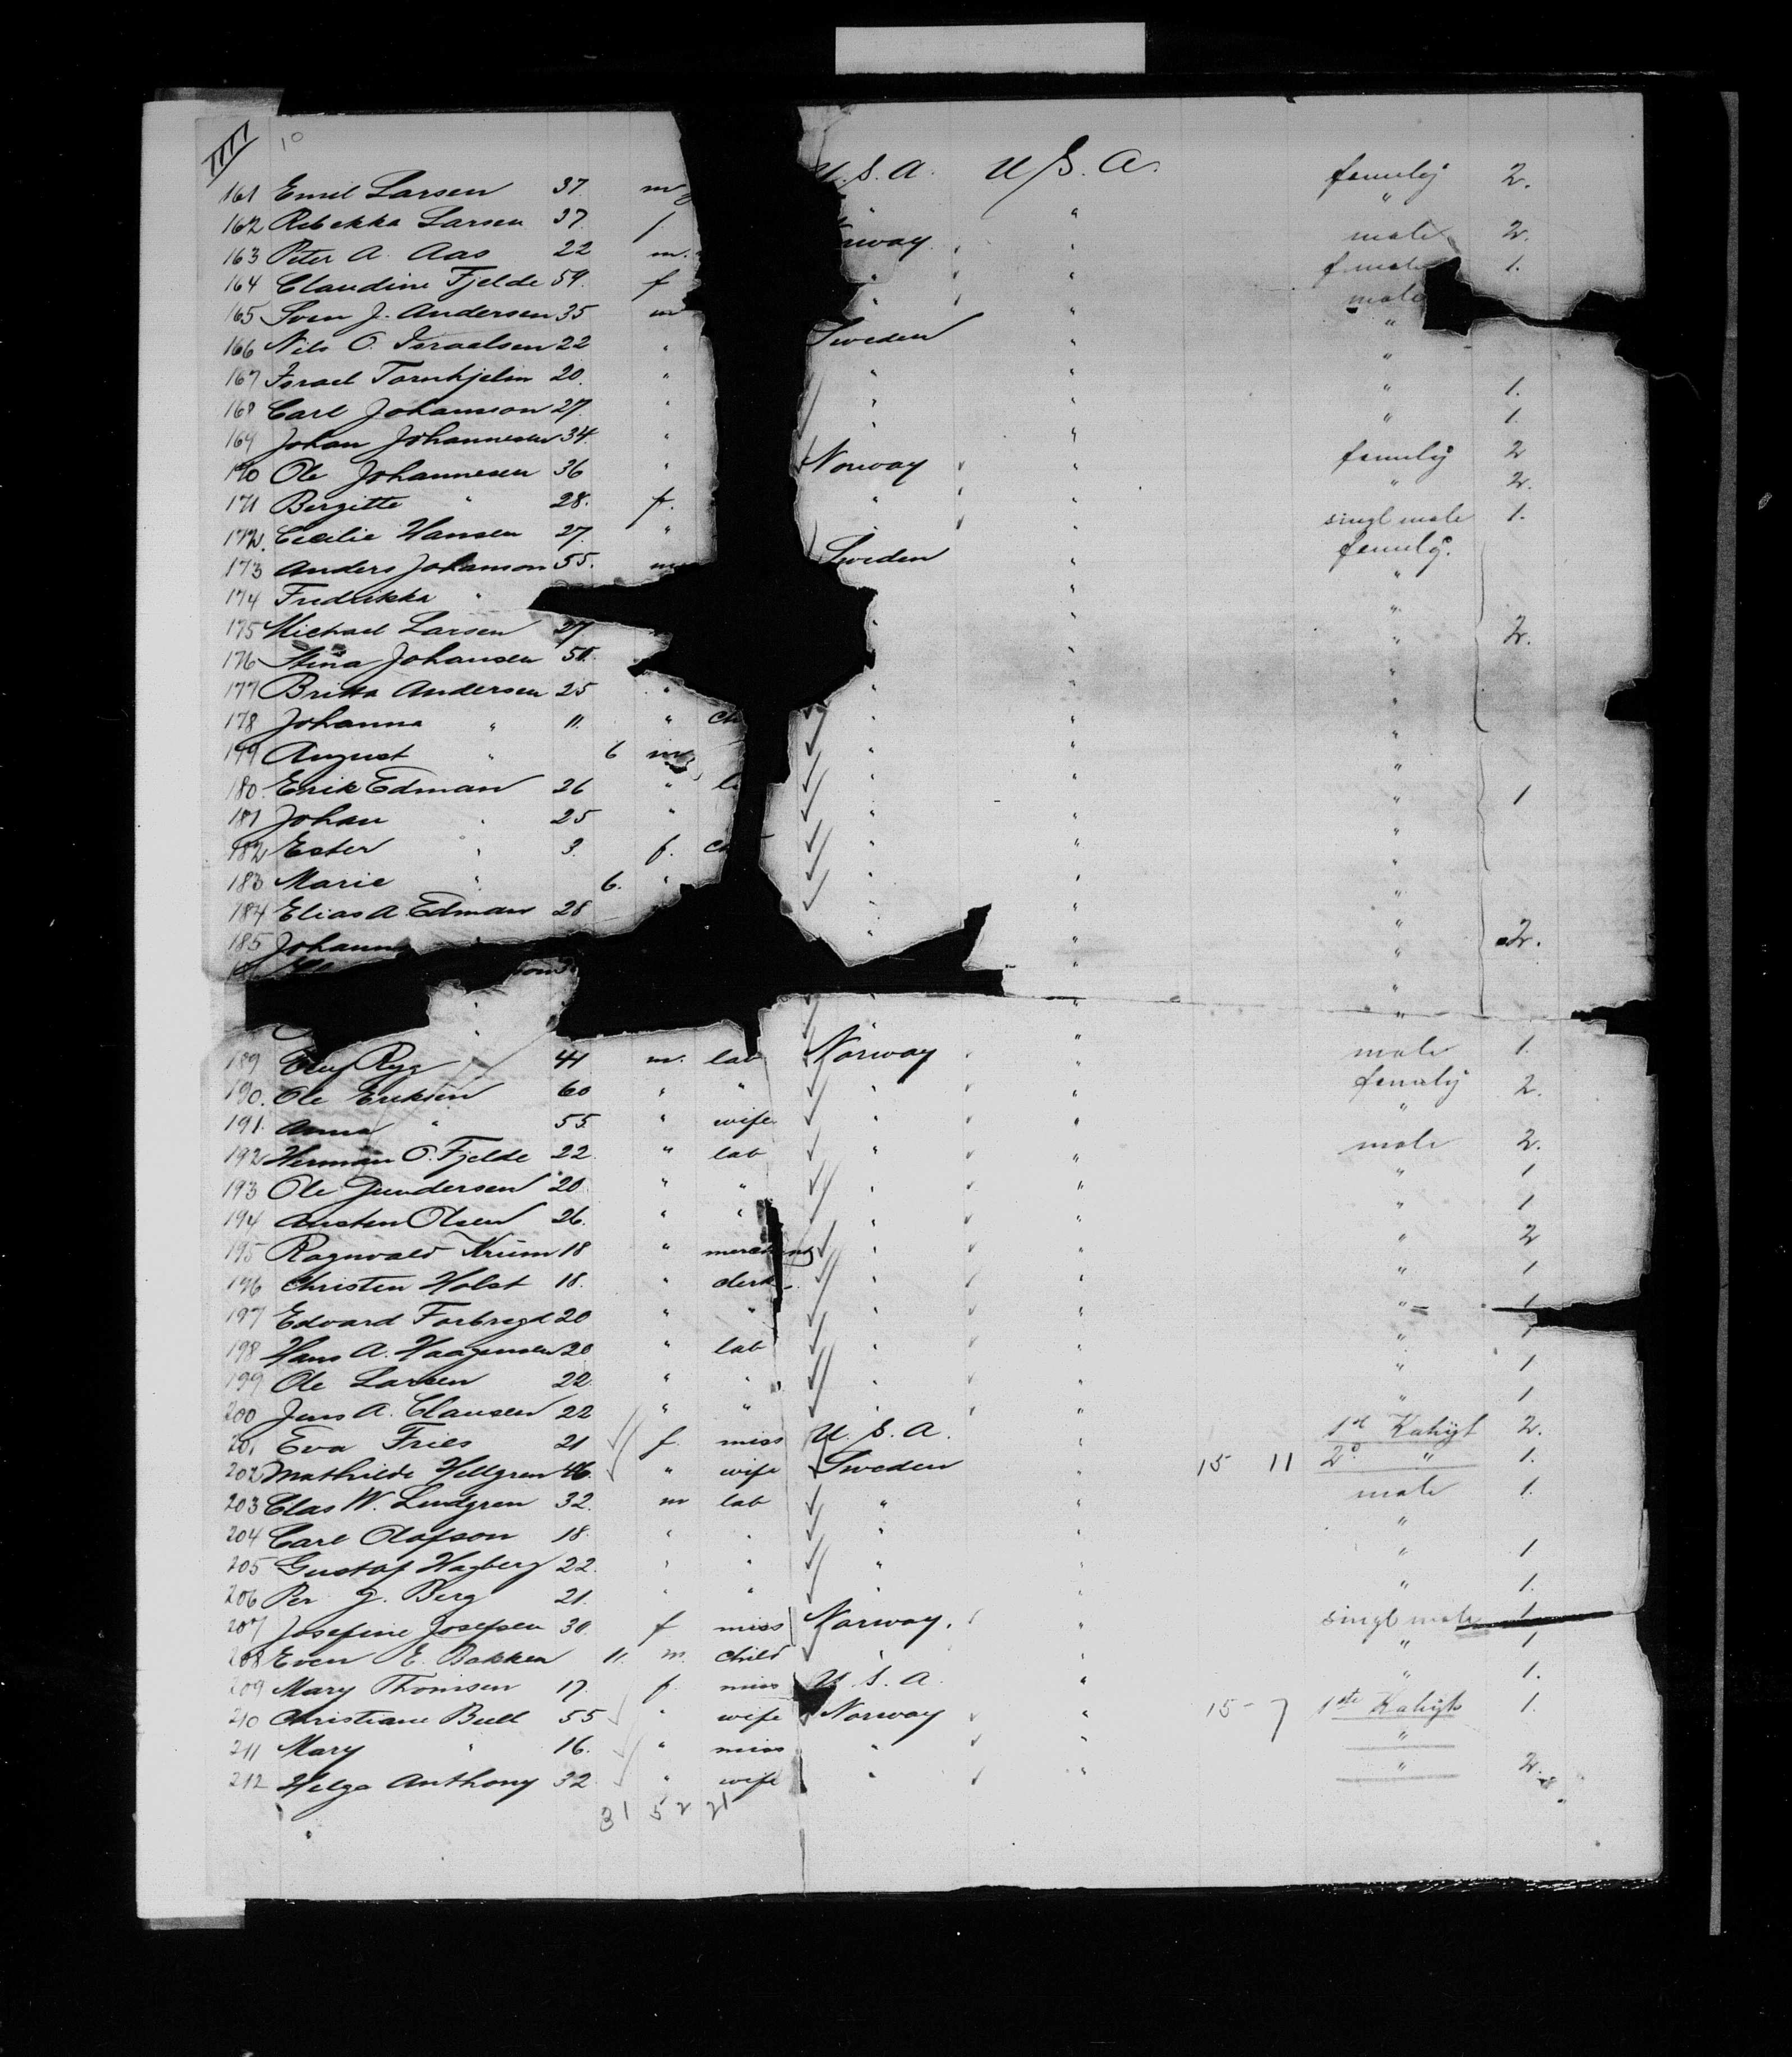 IIII 10
161 Emil Larsen 37. m U.S.A. U.S.A. family 2.
162 Rebekka Larsen 37. f. " " "
163 Peter A. Aas 22 m. rway " male 2.
164 Claudine Fjelde 59. f " " female 1.
165 Sven J. Andersen 35 m " " male
166 Nils O. Israelsen 22 " Sweden " "
167 Israel Tornhjelm 20. " " " "
168 Carl Johanson 27. " " " " 1.
169 Johan Johannesen 34. " " " " 1.
170 Ole Johannesen 36 " Norway " family 2
171 Bergitte " 28. f. " " " 2.
172. Cecilie Hansen 27. " " " singl male 1.
173 Anders Johanson 55. m Sweden " family.
174 Fredrikka " " " "
175 Michael Larsen 27 " " "
176 Stina Johansen " " " 2.
177 Britta Andersen 25 " " " "
178 Johanna " 11. " ch " " "
179 August " 6 m " " "
180. Erik Edman 26 " l " " "
181 Johan " 25 " " " " 1
182 Ester " 3. f. c " " "
183 Marie " 6. " " " "
184 Elias A. Edman 28 " " "
185 Johanna " " " " 2.
189 Ryg 41 m. lab Norway " male 1.
190. Ole Eriksen 60 " " " " family 2.
191. Anna " 55 " wife " " "
192 Herman O. Fjelde 22 " lab " " male 2.
193 Ole Gundersen 20 " " " " " 1
194 Austen Olsen 26. " " " " " 1
195 Ragnvald Krüm 18 " " " " 2
196 Christen Holst 18. " clerk " " " 1
197 Edvard Forbregd 20 " " " " " 1
198 Hans A. Haagensen 20 " lab " " " 1
199 Ole Larsen 22. " " " " " 1
200 Jens A. Clausen 22 " " " " " 1
201 Eva Fries 21 f. miss U.S.A. " 1st Kahyt 2.
202 Mathilde Hellgren 46. " wife Sweden " 15 11 2d " 1.
203 Clas W. Lindgren 32. m lab " " male 1.
204 Carl Olofson 18. " " " " "
205 Gustaf Hagberg 22. " " " " " 1
206 Per G. Berg 21. " " " " " 1.
207 Josefine Josefsen 30. f miss Norway. " singl male 1
208 Even E. Bakken 11. m. child " " " 1
209 Mary Thomsen 17. f. miss U.S.A. " " 1.
210 Christiane Bull 55 " wife Norway " 15 - 7 1ste Kahyt 1.
211 Mary " 16. " miss " " "
212 Helga Anthony 32 " wife " " " 2.
31 52 21